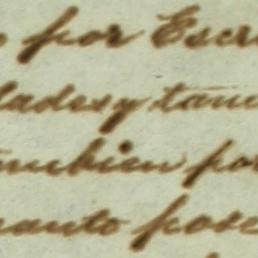 por Escri
ladas y tam
ambien por
uanto pose